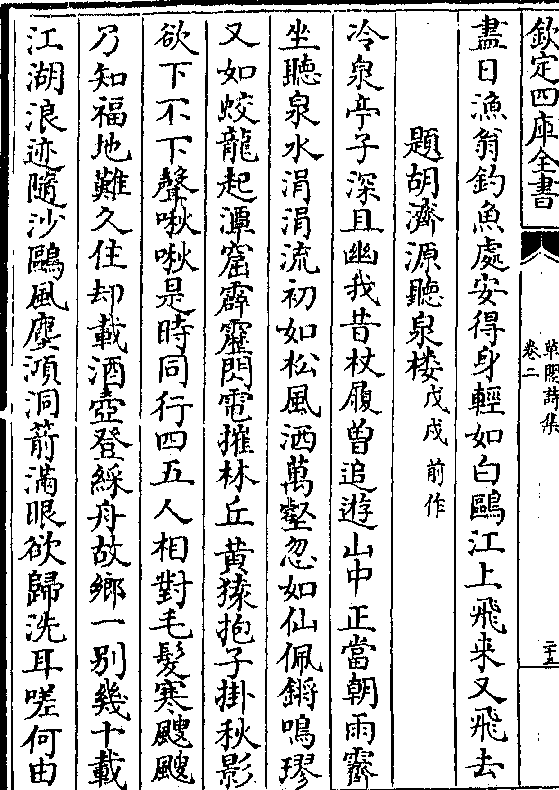 欽定四庫全書
草閣詩集
卷二
二十五
盡日漁翁釣魚處安得身輕如白鷗江上飛来又飛去
題胡濟源聽泉楼戊戌前作
冷泉亭子深且幽我昔杖履曾追遊山中正當朝雨霽
坐聽泉水涓涓流初如松風洒萬壑忽如仙佩鏘鳴璆
又如蛟龍起潭窟霹靂閃電摧林丘黄猿抱子掛秋影
欲下不下聲啾啾是時同行四五人相對毛髮寒颼颼
乃知福地難久住却載酒壺登綵舟故鄉一别幾十載
江湖浪迹隨沙鷗風塵澒洞箭滿眼欲歸洗耳嗟何由